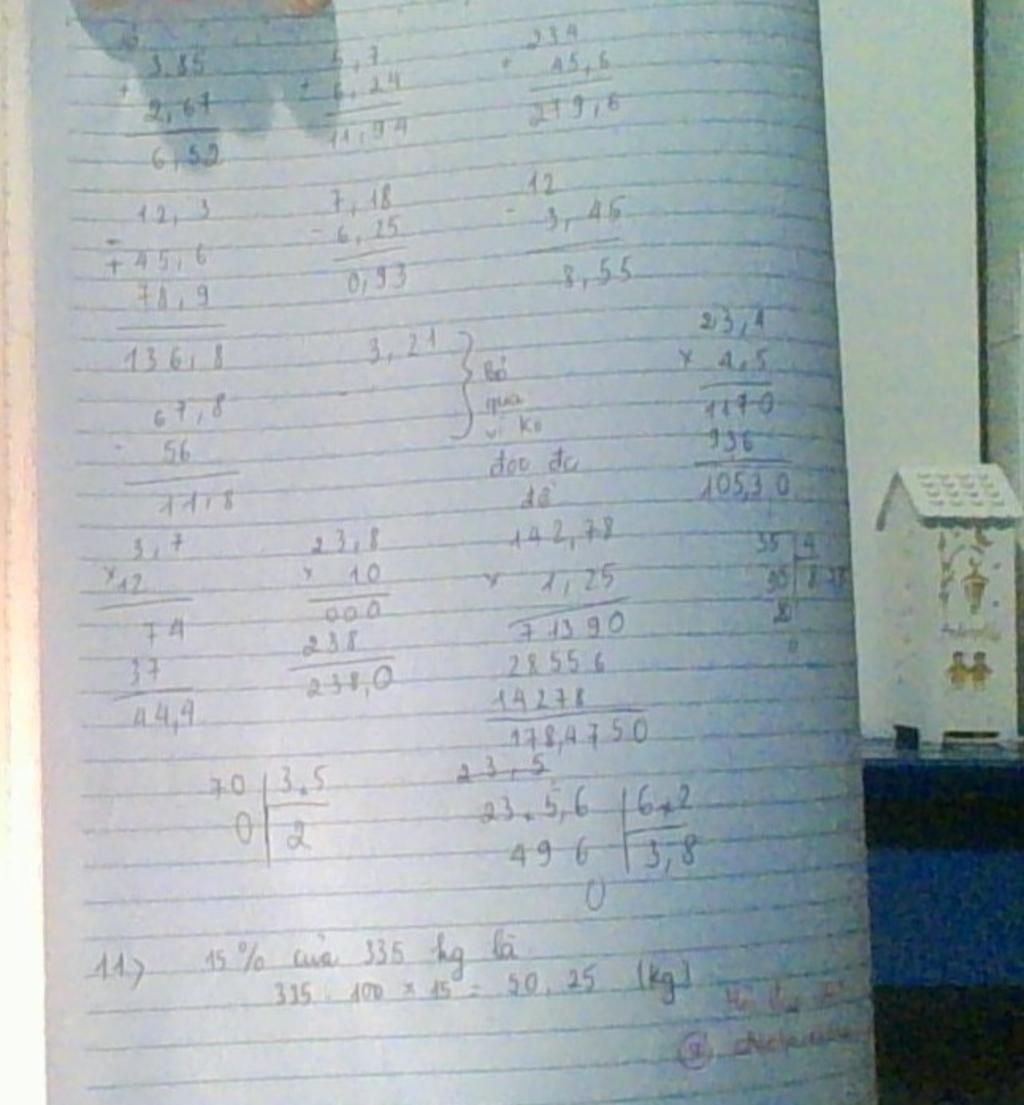 3,85 5,7 234
+ + 6,24 + 45,6
2,67 11,94 279,6
6,52
12,3 7,18 12
+ 45,6 - 6,25 - 3,45
78,9 0,93 8,55
136,8 3,21 } Bỏ 23,4
67,8 qua × 4,5
- 56 vì ko 1170
11,8 đọc đc 936
đề 105,30
3,7 23,8 142,78 35 4
× 12 × 10 × 1,25 8,75
74 000 71390
37 238 28556
44,4 238,0 14278
178,4750
70 3,5 23,5
0 2 23,5,6 6,2
496 3,8
0
11) 15% của 335 kg là
335 : 100 × 15 = 50,25 (kg)